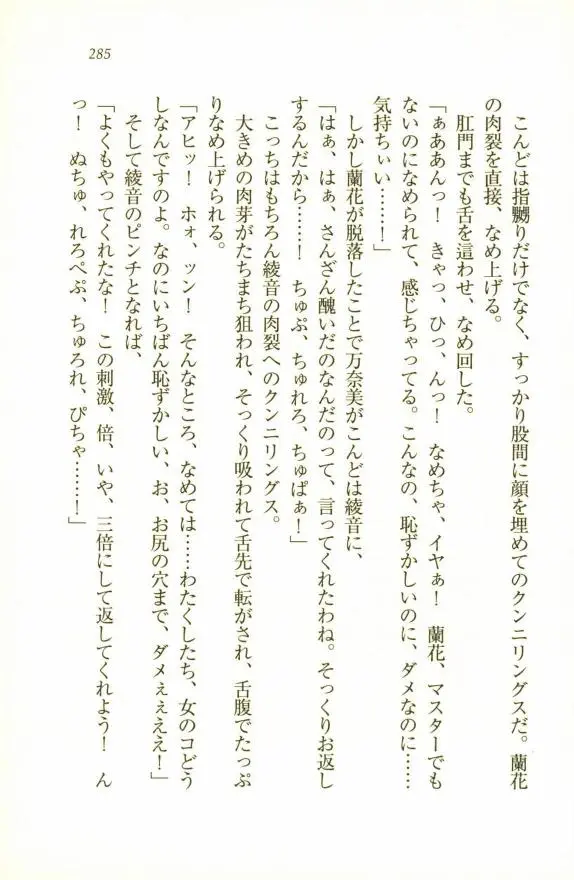 285
こんどは指嬲りだけでなく、すっかり股間に顔を埋めてのクンニリングスだ。蘭花
の肉裂を直接、なめ上げる。
肛門までも舌を這わせ、なめ回した。
「ぁああんっ！　きゃっ、ひっ、んっ！　なめちゃ、イヤぁ！　蘭花、マスターでも
ないのになめられて、感じちゃってる。こんなの、恥ずかしいのに、ダメなのに……
気持ちぃい……！」
しかし蘭花が脱落したことで万奈美がこんどは綾音に、
「はぁ、はぁ、さんざん醜いだのなんだのって、言ってくれたわね。そっくりお返し
するんだから……！　ちゅぷ、ちゅれろ、ちゅぱぁ！」
こっちはもちろん綾音の肉裂へのクンニリングス。
大きめの肉芽がたちまち狙われ、そっくり吸われて舌先で転がされ、舌腹でたっぷ
りなめ上げられる。
「アヒッ！　ホォ、ッン！　そんなところ、なめては……わたくしたち、女のコどう
しなんですのよ。なのにいちばん恥ずかしい、お、お尻の穴まで、ダメぇぇええ！」
そして綾音のピンチとなれば、
「よくもやってくれたな！　この刺激、倍、いや、三倍にして返してくれよう！　ん
っ！　ぬちゅ、れろぺぷ、ちゅろれ、ぴちゃ……！」